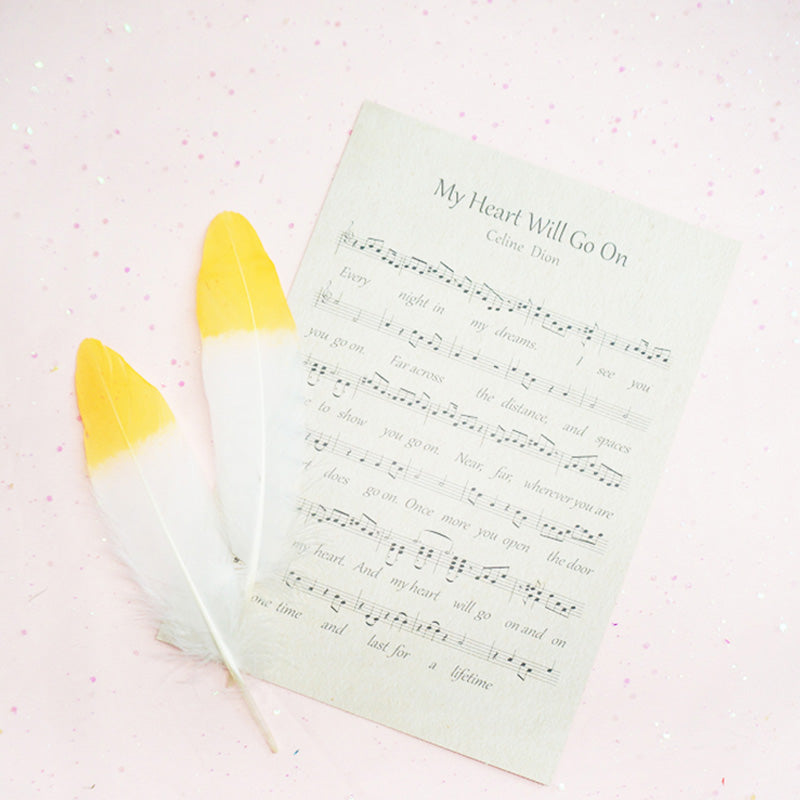 My Heart Will Go On
Celine Dion
Every night in my dreams. I see you
you go on. Far across the distance, and spaces
e to show you go on. Near, far, wherever you are
does go on. Once more you open the door
my heart. And my heart will go on and on
one time and last for a lifetime